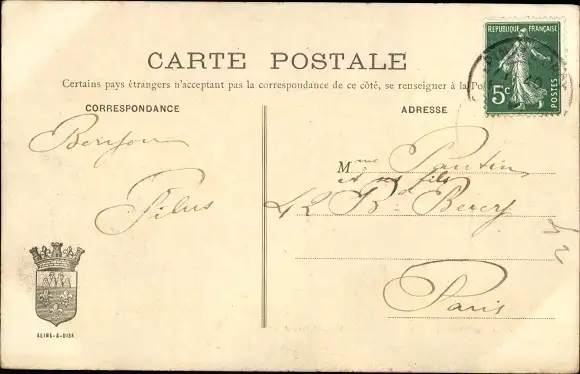 CARTE POSTALE
Certains pays étrangers n'acceptant pas la correspondance de ce côté, se renseigner à la Po
CORRESPONDANCE
ADRESSE
REPUBLIQUE FRANÇAISE
5c
POSTES
Bonjour
Filus
Mme Pautin
et ses fils
42 R. Bercy
Paris
SEINE-&-OISE